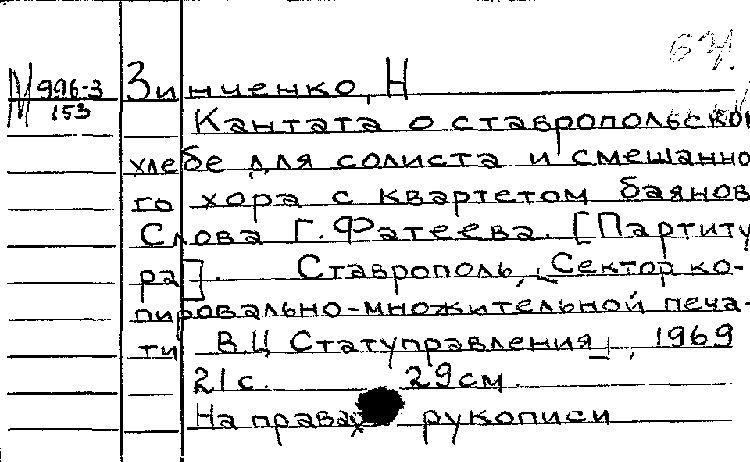 М 996-3
153
Зинченко, Н
Кантата о ставропольском
хлебе для солиста и смешанно
го хора с квартетом баянов
Слова Г. Фатеева. [Партиту
ра]. Ставрополь, [Сектор ко-
пировально-множительной печа-
ти ВЦ Статуправления], 1969
21 с. 29 см
На правах рукописи